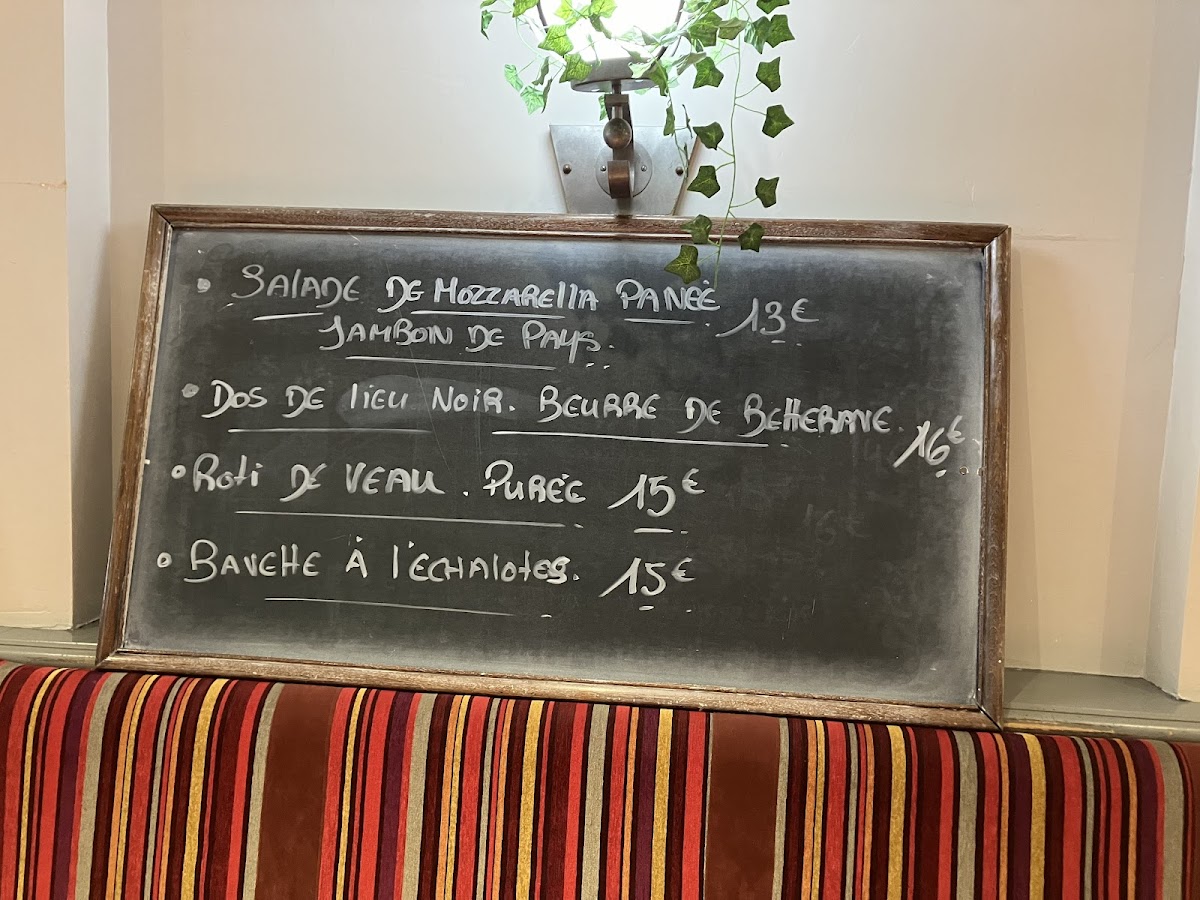 • SALADE DE MOZZARELLA PANEÉ 13€
JAMBON DE PAYS.
• DOS DE LIEU NOIR. BEURRE DE BETTERAVE. 16€
• Roti DE VEAU. PURÉE 15€
• BAVETTE À L'ÉCHALOTES. 15€